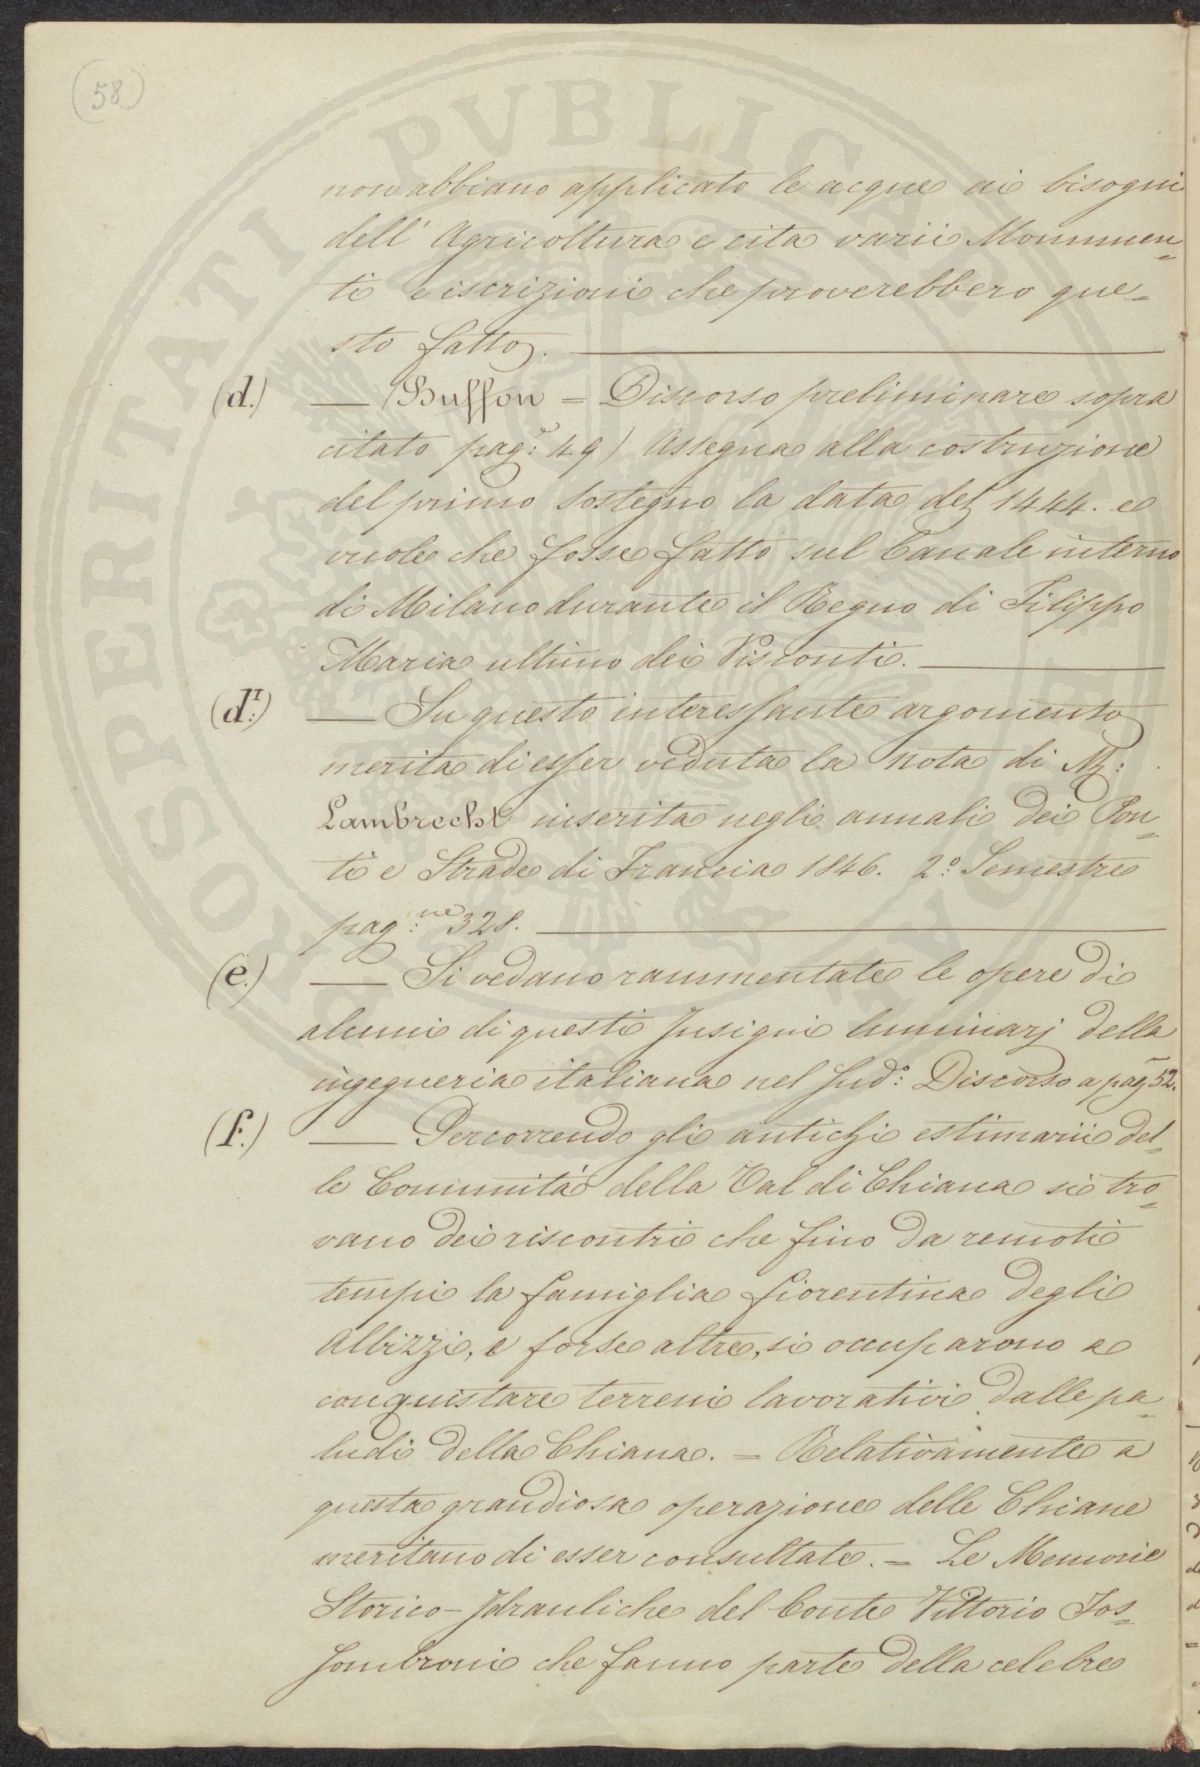 (58)
PVBLICAE
PROSPERITATI
non abbiano applicato le acque ai bisogni
dell' Agricoltura e cita varii Monumen=
ti e iscrizioni che proverebbero que=
sto fatto.
(d.) — (Buffon = Discorso preliminare sopra
citato pag.ª 49) Assegna alla costruzione
del primo sostegno la data del 1444. e
vuole che fosse fatto sul Canale interno
di Milano durante il Regno di Filippo
Maria ultimo dei Visconti.
(d¹:) — Su questo interessante argomento
merita di esser veduta la nota di M:
Lambrecht inserita negli annali dei Pon=
ti e Strade di Francia 1846. 2.º Semestre
pag:ne 328.
(e.) — Si vedano rammentate le opere di
alcuni di questi Insigni luminarj della
ingegneria italiana nel sud.º Discorso a pag 52.
(f.) — Percorrendo gli antichi estimarii del=
le Comunità della Val di Chiana si tro=
vano dei riscontri che fino da remoti
tempi la famiglia fiorentina degli
Albizzi, e forse altre, si occuparono a
conquistare terreni lavorativi dalle pa=
ludi della Chiana. = Relativamente a
questa grandiosa operazione delle Chiane
meritano di esser consultate. = Le Memorie
Storico-Idrauliche del Conte Vittorio Fos=
sombroni che fanno parte della celebre